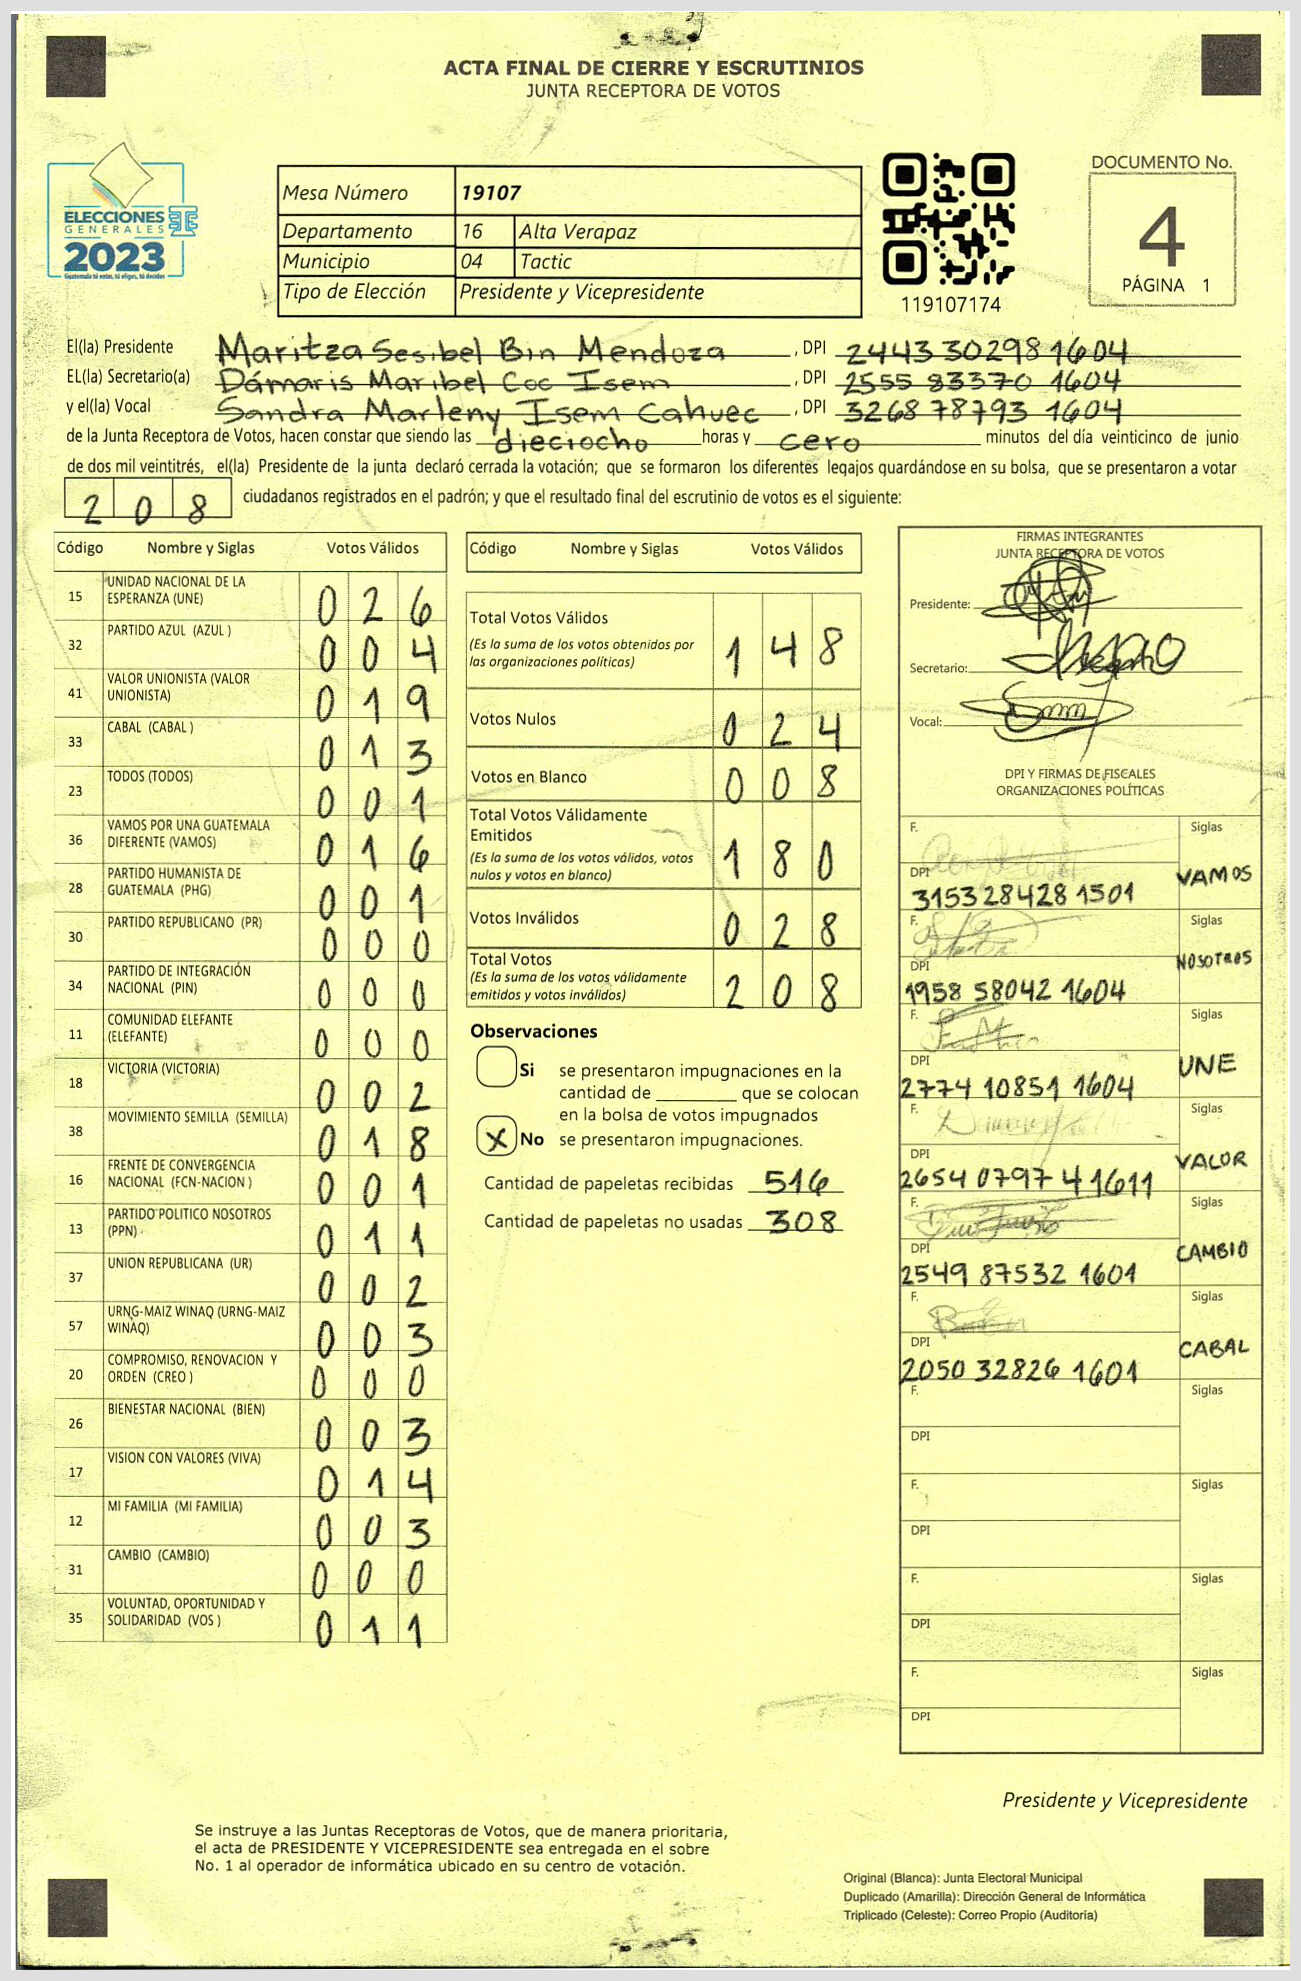 ACTA FINAL DE CIERRE Y ESCRUTINIOS
JUNTA RECEPTORA DE VOTOS
ELECCIONES
GENERALES
2023
Guatemala tú eres, tú eliges, tú decides
Mesa Número 19107
Departamento 16 Alta Verapaz
Municipio 04 Tactic
Tipo de Elección Presidente y Vicepresidente
119107174
DOCUMENTO No.
4
PÁGINA 1
El(la) Presidente Maritza Sesibel Bin Mendoza , DPI 2443 30298 1604
EL(la) Secretario(a) Dámaris Maribel Coc Isem , DPI 2555 83370 1604
y el(la) Vocal Sandra Marleny Isem Cahuec , DPI 3268 78793 1604
de la Junta Receptora de Votos, hacen constar que siendo las dieciocho horas y cero minutos del día veinticinco de junio
de dos mil veintitrés, el(la) Presidente de la junta declaró cerrada la votación; que se formaron los diferentes legajos guardándose en su bolsa, que se presentaron a votar
208 ciudadanos registrados en el padrón; y que el resultado final del escrutinio de votos es el siguiente:
Código Nombre y Siglas Votos Válidos
15 UNIDAD NACIONAL DE LA ESPERANZA (UNE) 026
32 PARTIDO AZUL (AZUL ) 004
41 VALOR UNIONISTA (VALOR UNIONISTA) 019
33 CABAL (CABAL ) 013
23 TODOS (TODOS) 001
36 VAMOS POR UNA GUATEMALA DIFERENTE (VAMOS) 016
28 PARTIDO HUMANISTA DE GUATEMALA (PHG) 001
30 PARTIDO REPUBLICANO (PR) 000
34 PARTIDO DE INTEGRACIÓN NACIONAL (PIN) 000
11 COMUNIDAD ELEFANTE (ELEFANTE) 000
18 VICTORIA (VICTORIA) 002
38 MOVIMIENTO SEMILLA (SEMILLA) 018
16 FRENTE DE CONVERGENCIA NACIONAL (FCN-NACION ) 001
13 PARTIDO POLITICO NOSOTROS (PPN) 011
37 UNION REPUBLICANA (UR) 002
57 URNG-MAIZ WINAQ (URNG-MAIZ WINAQ) 003
20 COMPROMISO, RENOVACION Y ORDEN (CREO ) 000
26 BIENESTAR NACIONAL (BIEN) 003
17 VISION CON VALORES (VIVA) 014
12 MI FAMILIA (MI FAMILIA) 003
31 CAMBIO (CAMBIO) 000
35 VOLUNTAD, OPORTUNIDAD Y SOLIDARIDAD (VOS ) 011
Código Nombre y Siglas Votos Válidos
Total Votos Válidos 148
(Es la suma de los votos obtenidos por
las organizaciones políticas)
Votos Nulos 024
Votos en Blanco 008
Total Votos Válidamente
Emitidos 180
(Es la suma de los votos válidos, votos
nulos y votos en blanco)
Votos Inválidos 028
Total Votos 208
(Es la suma de los votos válidamente
emitidos y votos inválidos)
Observaciones
Si se presentaron impugnaciones en la
cantidad de ________ que se colocan
en la bolsa de votos impugnados
X No se presentaron impugnaciones.
Cantidad de papeletas recibidas 516
Cantidad de papeletas no usadas 308
FIRMAS INTEGRANTES
JUNTA RECEPTORA DE VOTOS
Presidente:
Secretario:
Vocal:
DPI Y FIRMAS DE FISCALES
ORGANIZACIONES POLÍTICAS
F. Siglas
DPI VAMOS
3153 28428 1501
F. Siglas
DPI NOSOTROS
1958 58042 1604
F. Siglas
DPI UNE
2774 10851 1604
F. Siglas
DPI VALOR
2654 0797 4 1611
F. Siglas
DPI CAMBIO
2549 87532 1601
F. Siglas
DPI CABAL
2050 32826 1601
F. Siglas
DPI
F. Siglas
DPI
F. Siglas
DPI
F. Siglas
DPI
Presidente y Vicepresidente
Se instruye a las Juntas Receptoras de Votos, que de manera prioritaria,
el acta de PRESIDENTE Y VICEPRESIDENTE sea entregada en el sobre
No. 1 al operador de informática ubicado en su centro de votación.
Original (Blanca): Junta Electoral Municipal
Duplicado (Amarilla): Dirección General de Informática
Triplicado (Celeste): Correo Propio (Auditoría)